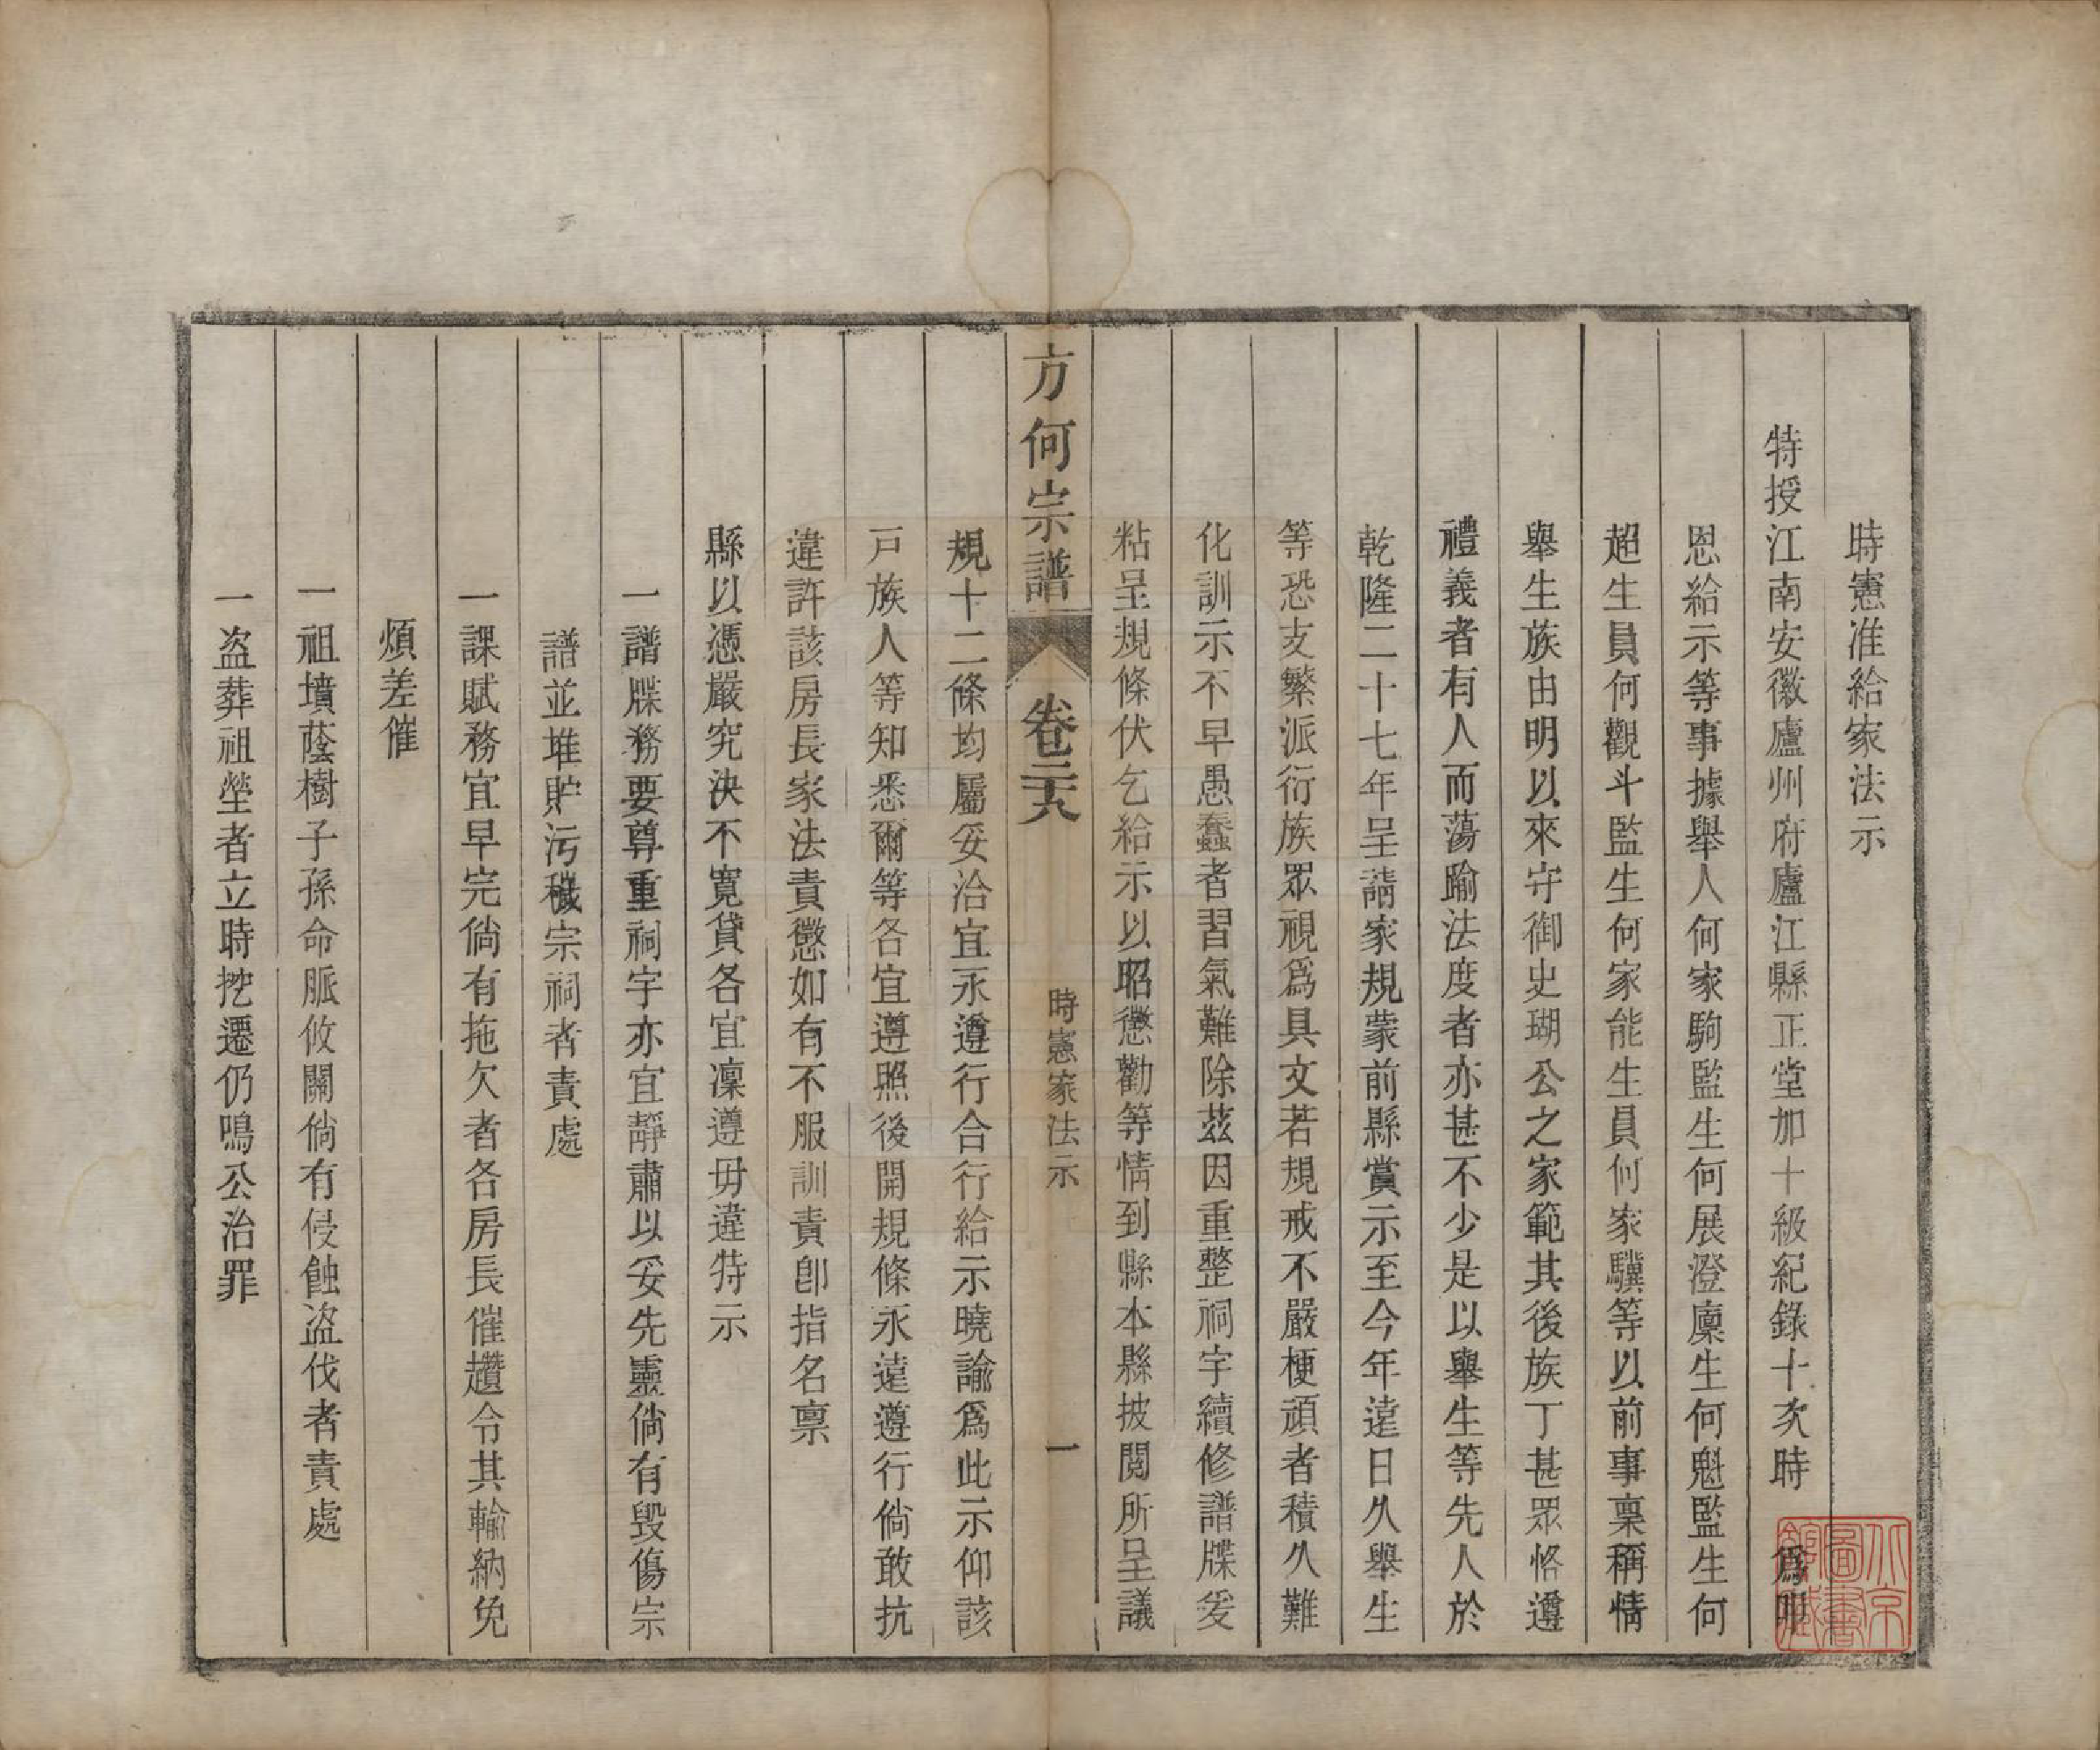 時憲准給家法示
特授江南安徽廬州府廬江縣正堂加十級紀錄十次時　爲叩
恩給示等事據舉人何家駒監生何展澄廩生何魁監生何
超生員何觀斗監生何家能生員何家驥等以前事稟稱情
舉生族由明以來守御史瑚公之家範其後族丁甚眾恪遵
禮義者有人而蕩踰法度者亦甚不少是以舉生等先人於
乾隆二十七年呈請家規蒙前縣賞示至今年遠日久舉生
等恐支繁派衍族眾視爲具文若規戒不嚴梗頑者積久難
化訓示不早愚蠢者習氣難除茲因重整祠宇續修譜牒爰
粘呈規條伏乞給示以昭懲勸等情到縣本縣披閱所呈議
方何宗譜　卷二十八　時憲家法示　一
規十二條均屬妥洽宜永遵行合行給示曉諭爲此示仰該
戸族人等知悉爾等各宜遵照後開規條永遠遵行倘敢抗
違許該房長家法責懲如有不服訓責卽指名禀
縣以憑嚴究決不寬貸各宜凜遵毋違特示
一譜牒務要尊重祠宇亦宜靜肅以妥先靈倘有毀傷宗
譜並堆貯污穢宗祠者責處
一課賦務宜早完倘有拖欠者各房長催趲令其輸納免
煩差催
一祖墳蔭樹子孫命脈攸關倘有侵蝕盜伐者責處
一盜葬祖塋者立時挖遷仍鳴公治罪
北京圖書館藏